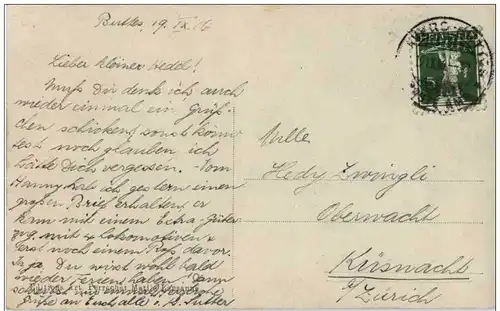 Buttes, 19. IX. 16
Lieber kleiner Hedd!
Muß Dir denk ich auch
wieder einmal ein Grüß-
chen schicken, sonst könn-
test noch glauben ich
hätte Dich vergessen. Vom
Hanny hab ich gestern einen
großen Brief erhalten, er
kam mit einem Extra-Güter-
zug mit 4 Lokomotiven &
erst noch einem Roß davor.
Ja ja, Du wirst wohl bald
wieder Ferien haben. Dann
schreibst
Grüße an Euch alle
Mlle
Hedy Zwingli
Oberwacht
Küsnacht
b/Zürich